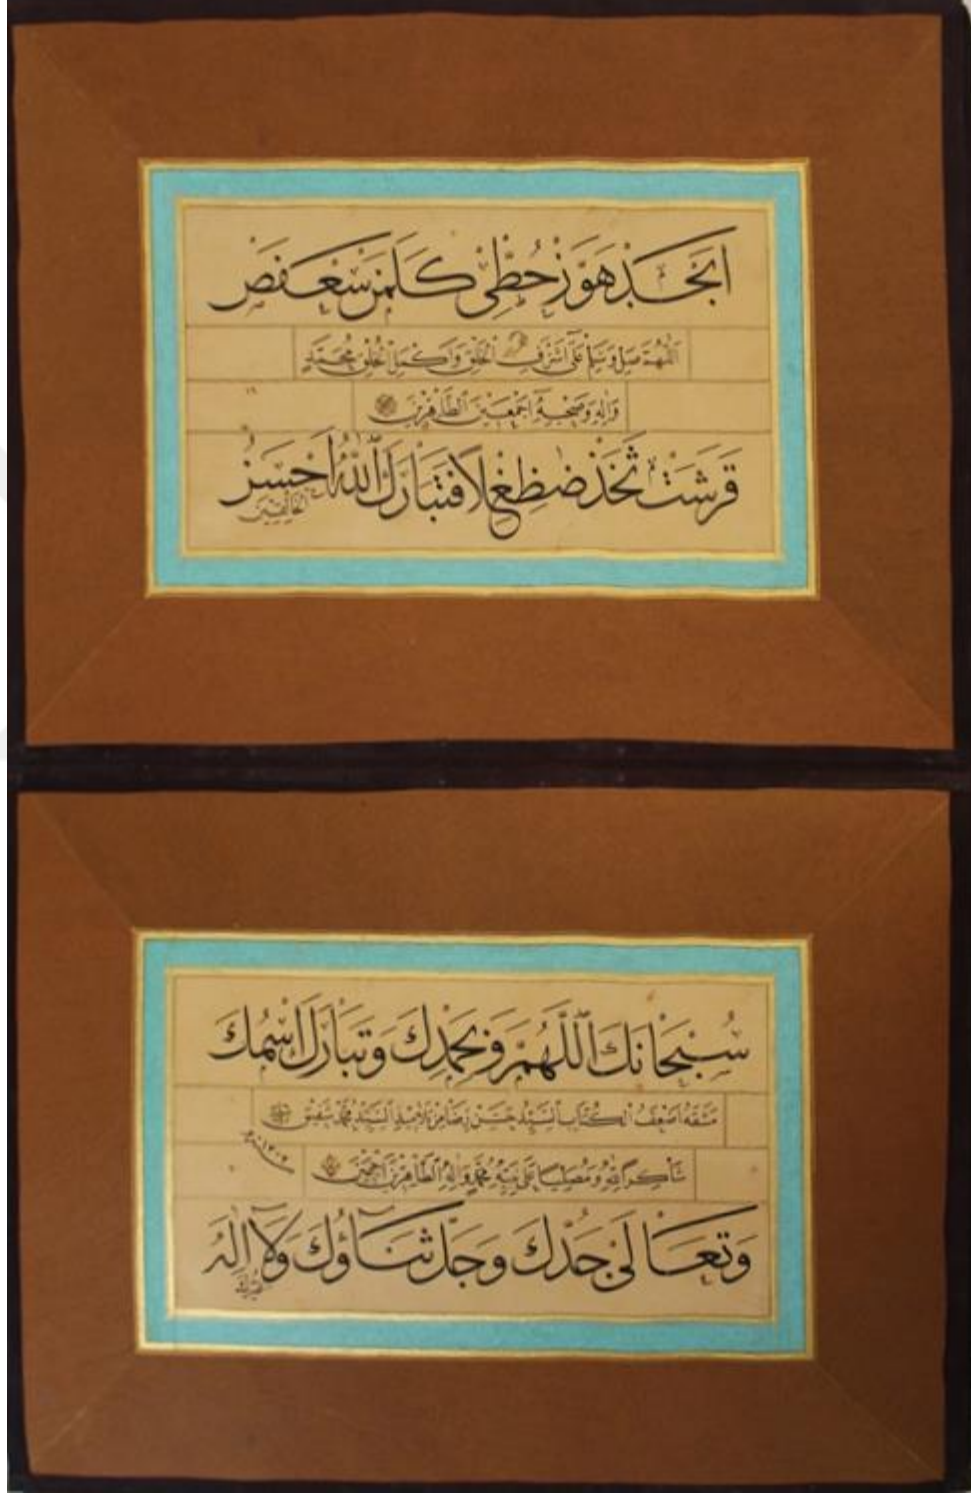 ابجد هوز حطي كلمن سعفص
اللهم صل وسلم على اشرف الخلق واكمل الخلق محمد
واله وصحبه اجمعين الطاهرين
قرشت ثخذ ضظغلا فتبارك الله احسن
الخالقين
سبحانك اللهم وبحمدك وتبارك اسمك
مشقه اضعف الكتاب السيد حسن رضا من تلاميذ السيد محمد شفيق
شاكرا لله ومصليا على نبيه محمد واله الطاهرين اجمعين
وتعالى جدك وجل ثناؤك ولا اله
غيرك